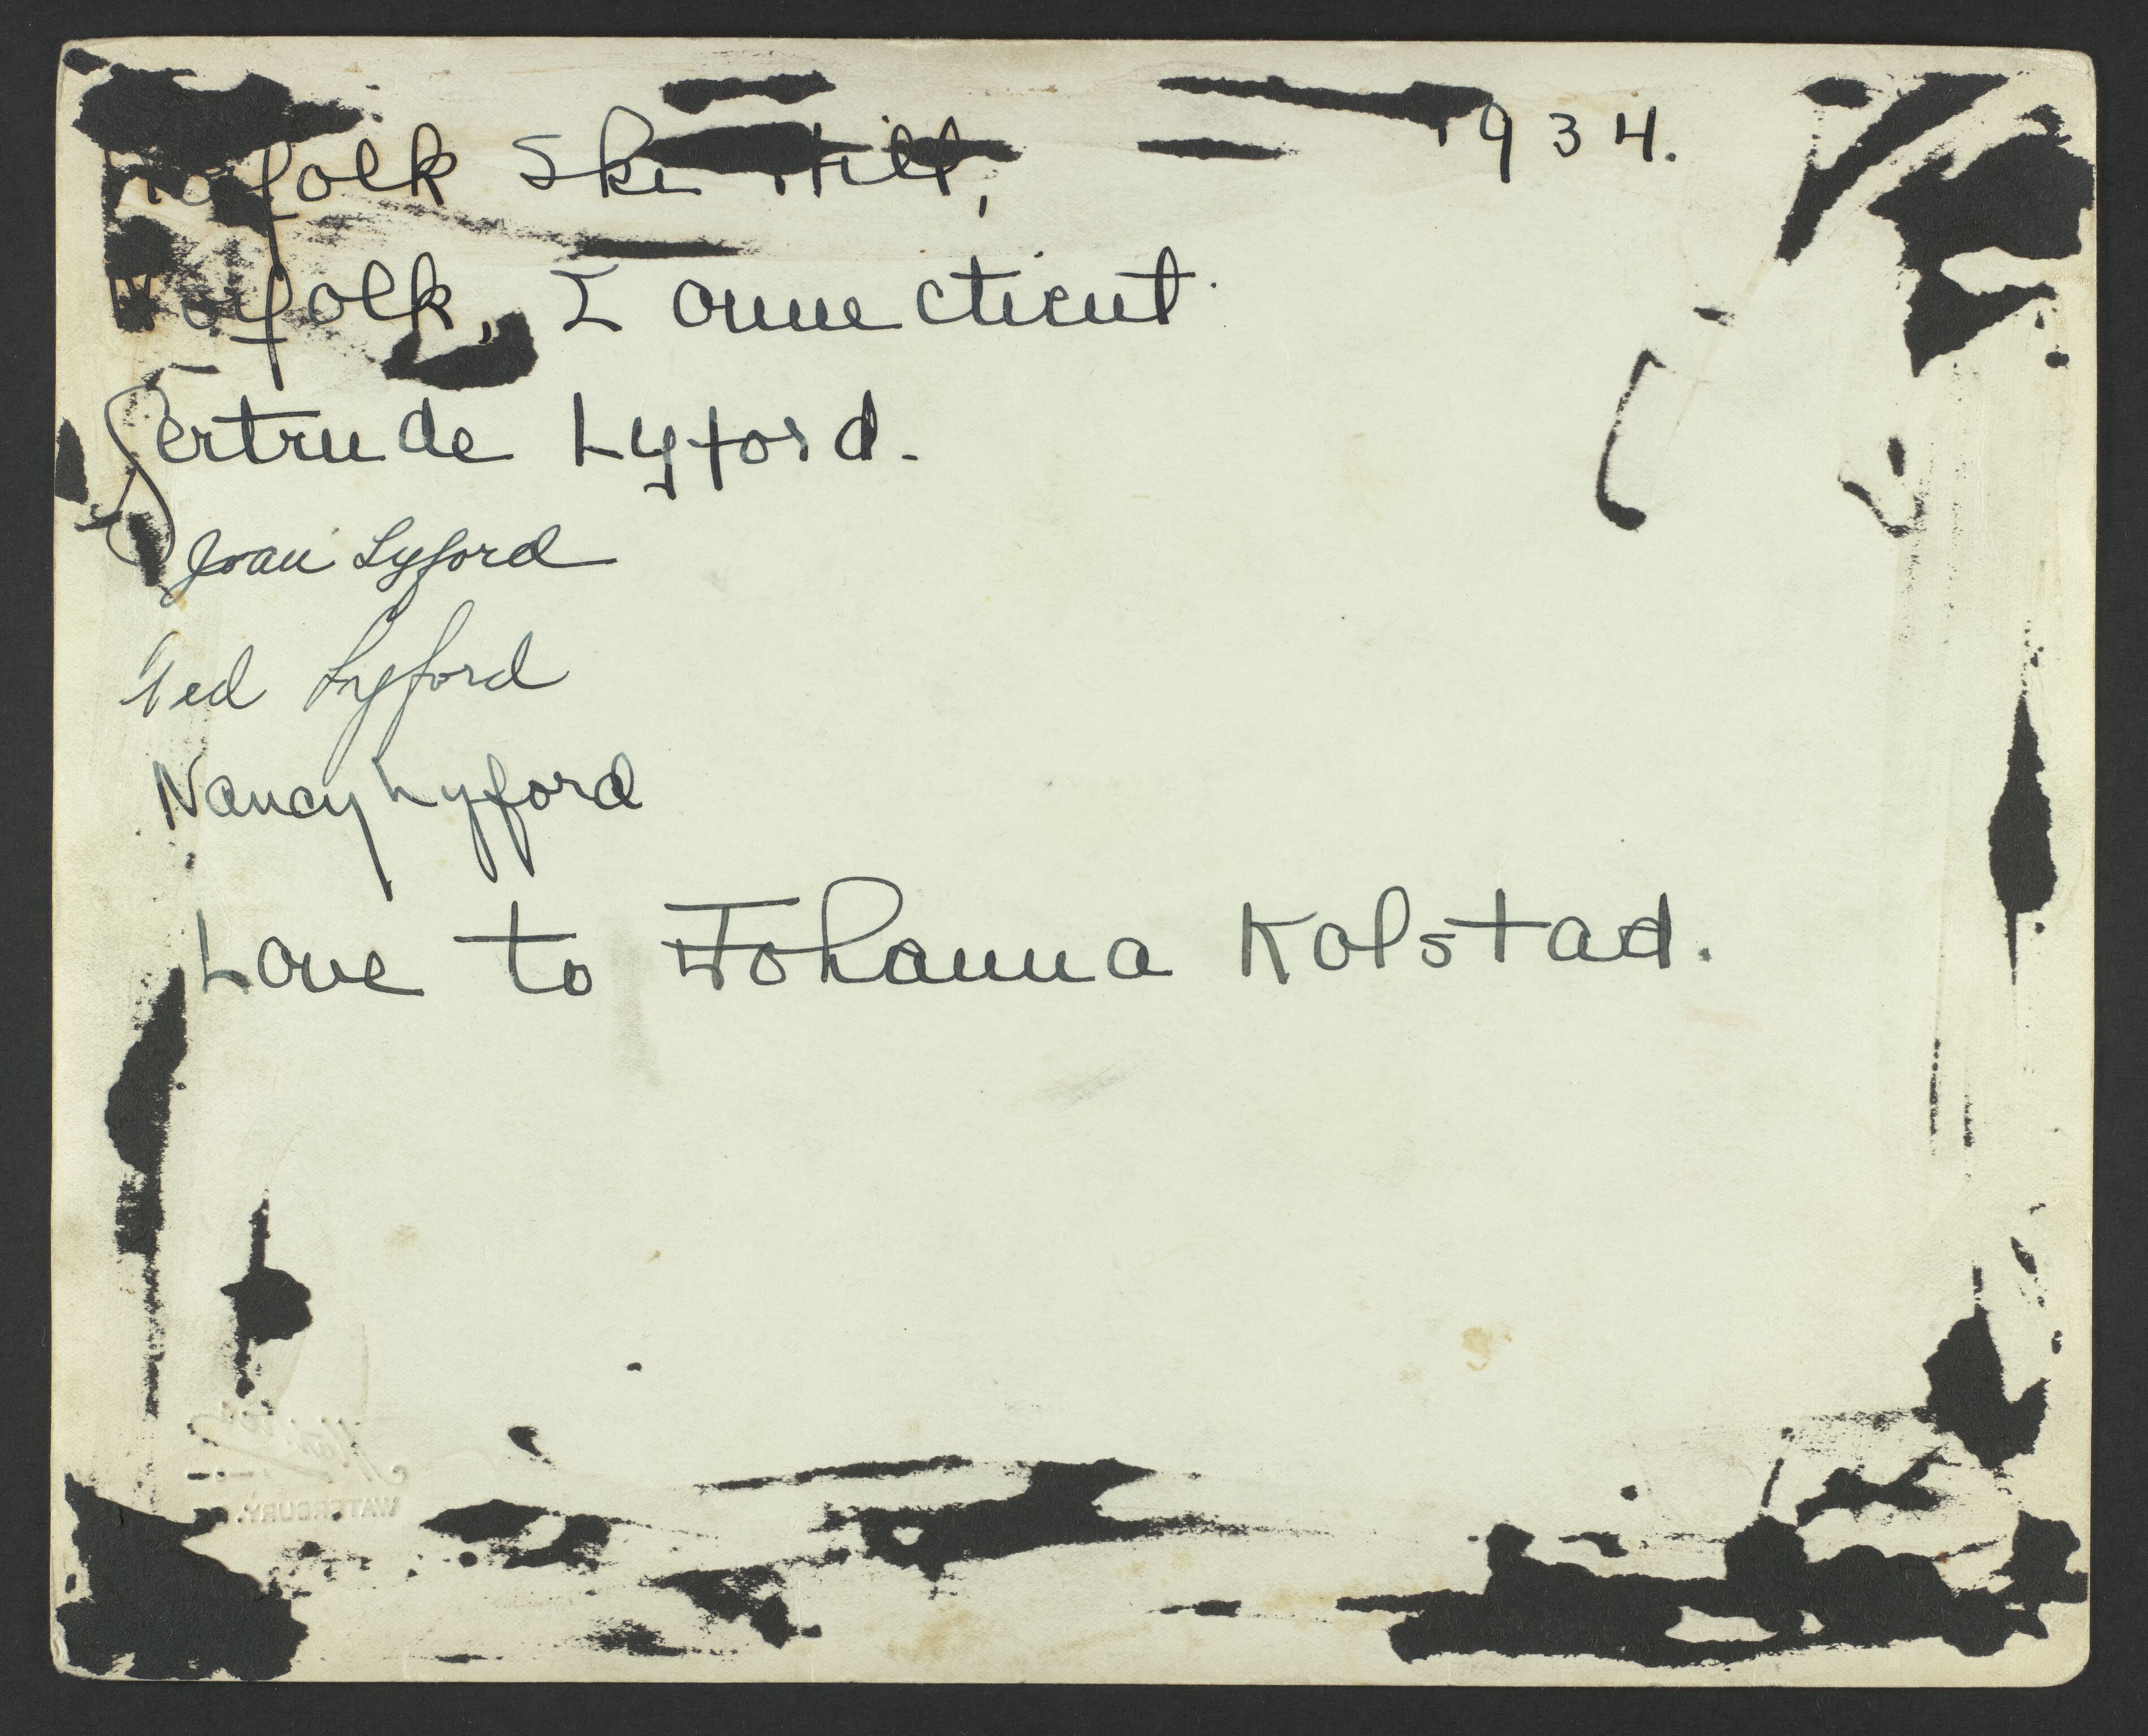 Norfolk Ski Hill, 1934.
Norfolk, Connecticut.
Gertrude Lyford.
Joan Lyford
Ted Lyford
Nancy Lyford
Love to Johanna Kolstad.
WATERBURY.